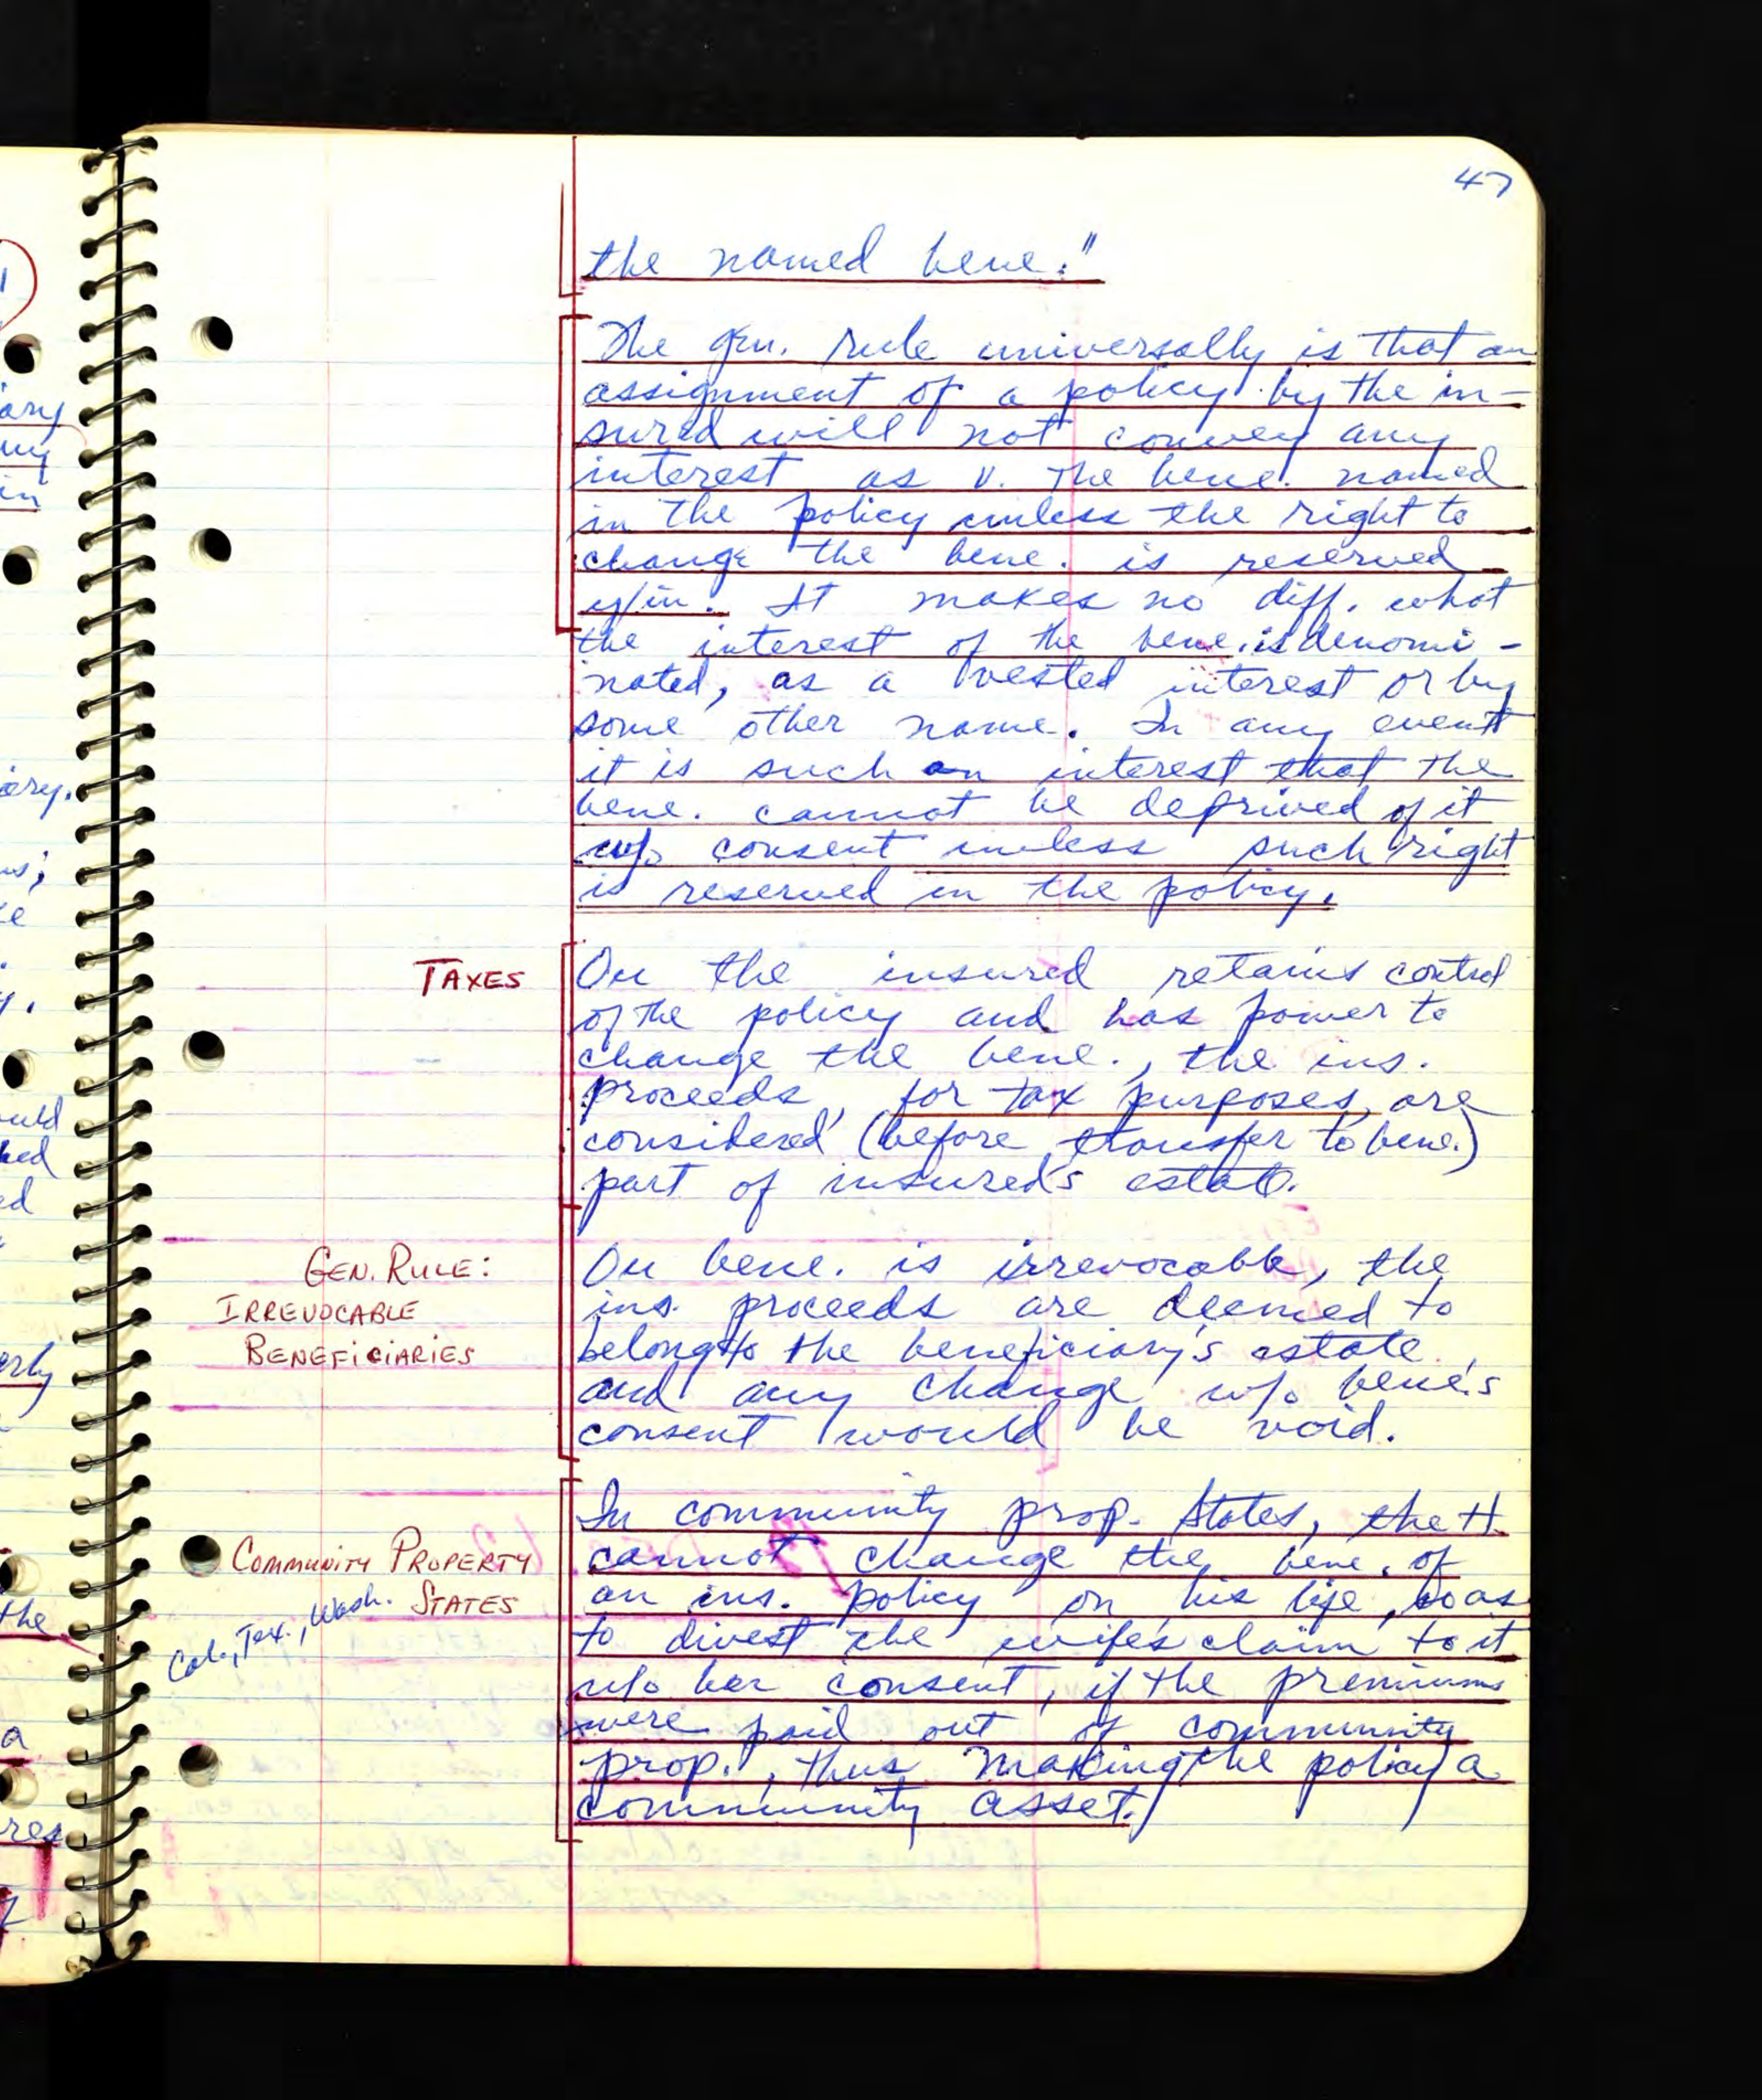 47
the named bene."
The gen. rule universally is that an
assignment of a policy by the in-
sured will not convey any
interest as v. the bene. named
in the policy unless the right to
change the bene. is reserved
It makes no diff. what
the interest of the bene. is denomi-
nated, as a vested interest or by
some other name. In any event
it is such an interest that the
bene. cannot be deprived of it
w/o consent unless such right
is reserved in the policy.
TAXES
the insured retains control
of the policy and has power to
change the bene., the ins.
proceeds, for tax purposes, are
considered (before transfer to bene.)
part of insured's estate.
GEN. RULE:
IRREVOCABLE
BENEFICIARIES
bene. is irrevocable, the
ins. proceeds are deemed to
belong to the beneficiary's estate,
and any change w/o bene's
consent would be void.
COMMUNITY PROPERTY
STATES
Cal., Tex., Wash.
In community prop. States, the H.
cannot change the bene. of
an ins. policy on his life, so as
to divest the wife's claim to it
w/o her consent, if the premiums
were paid out of community
prop., thus making the policy a
community asset.